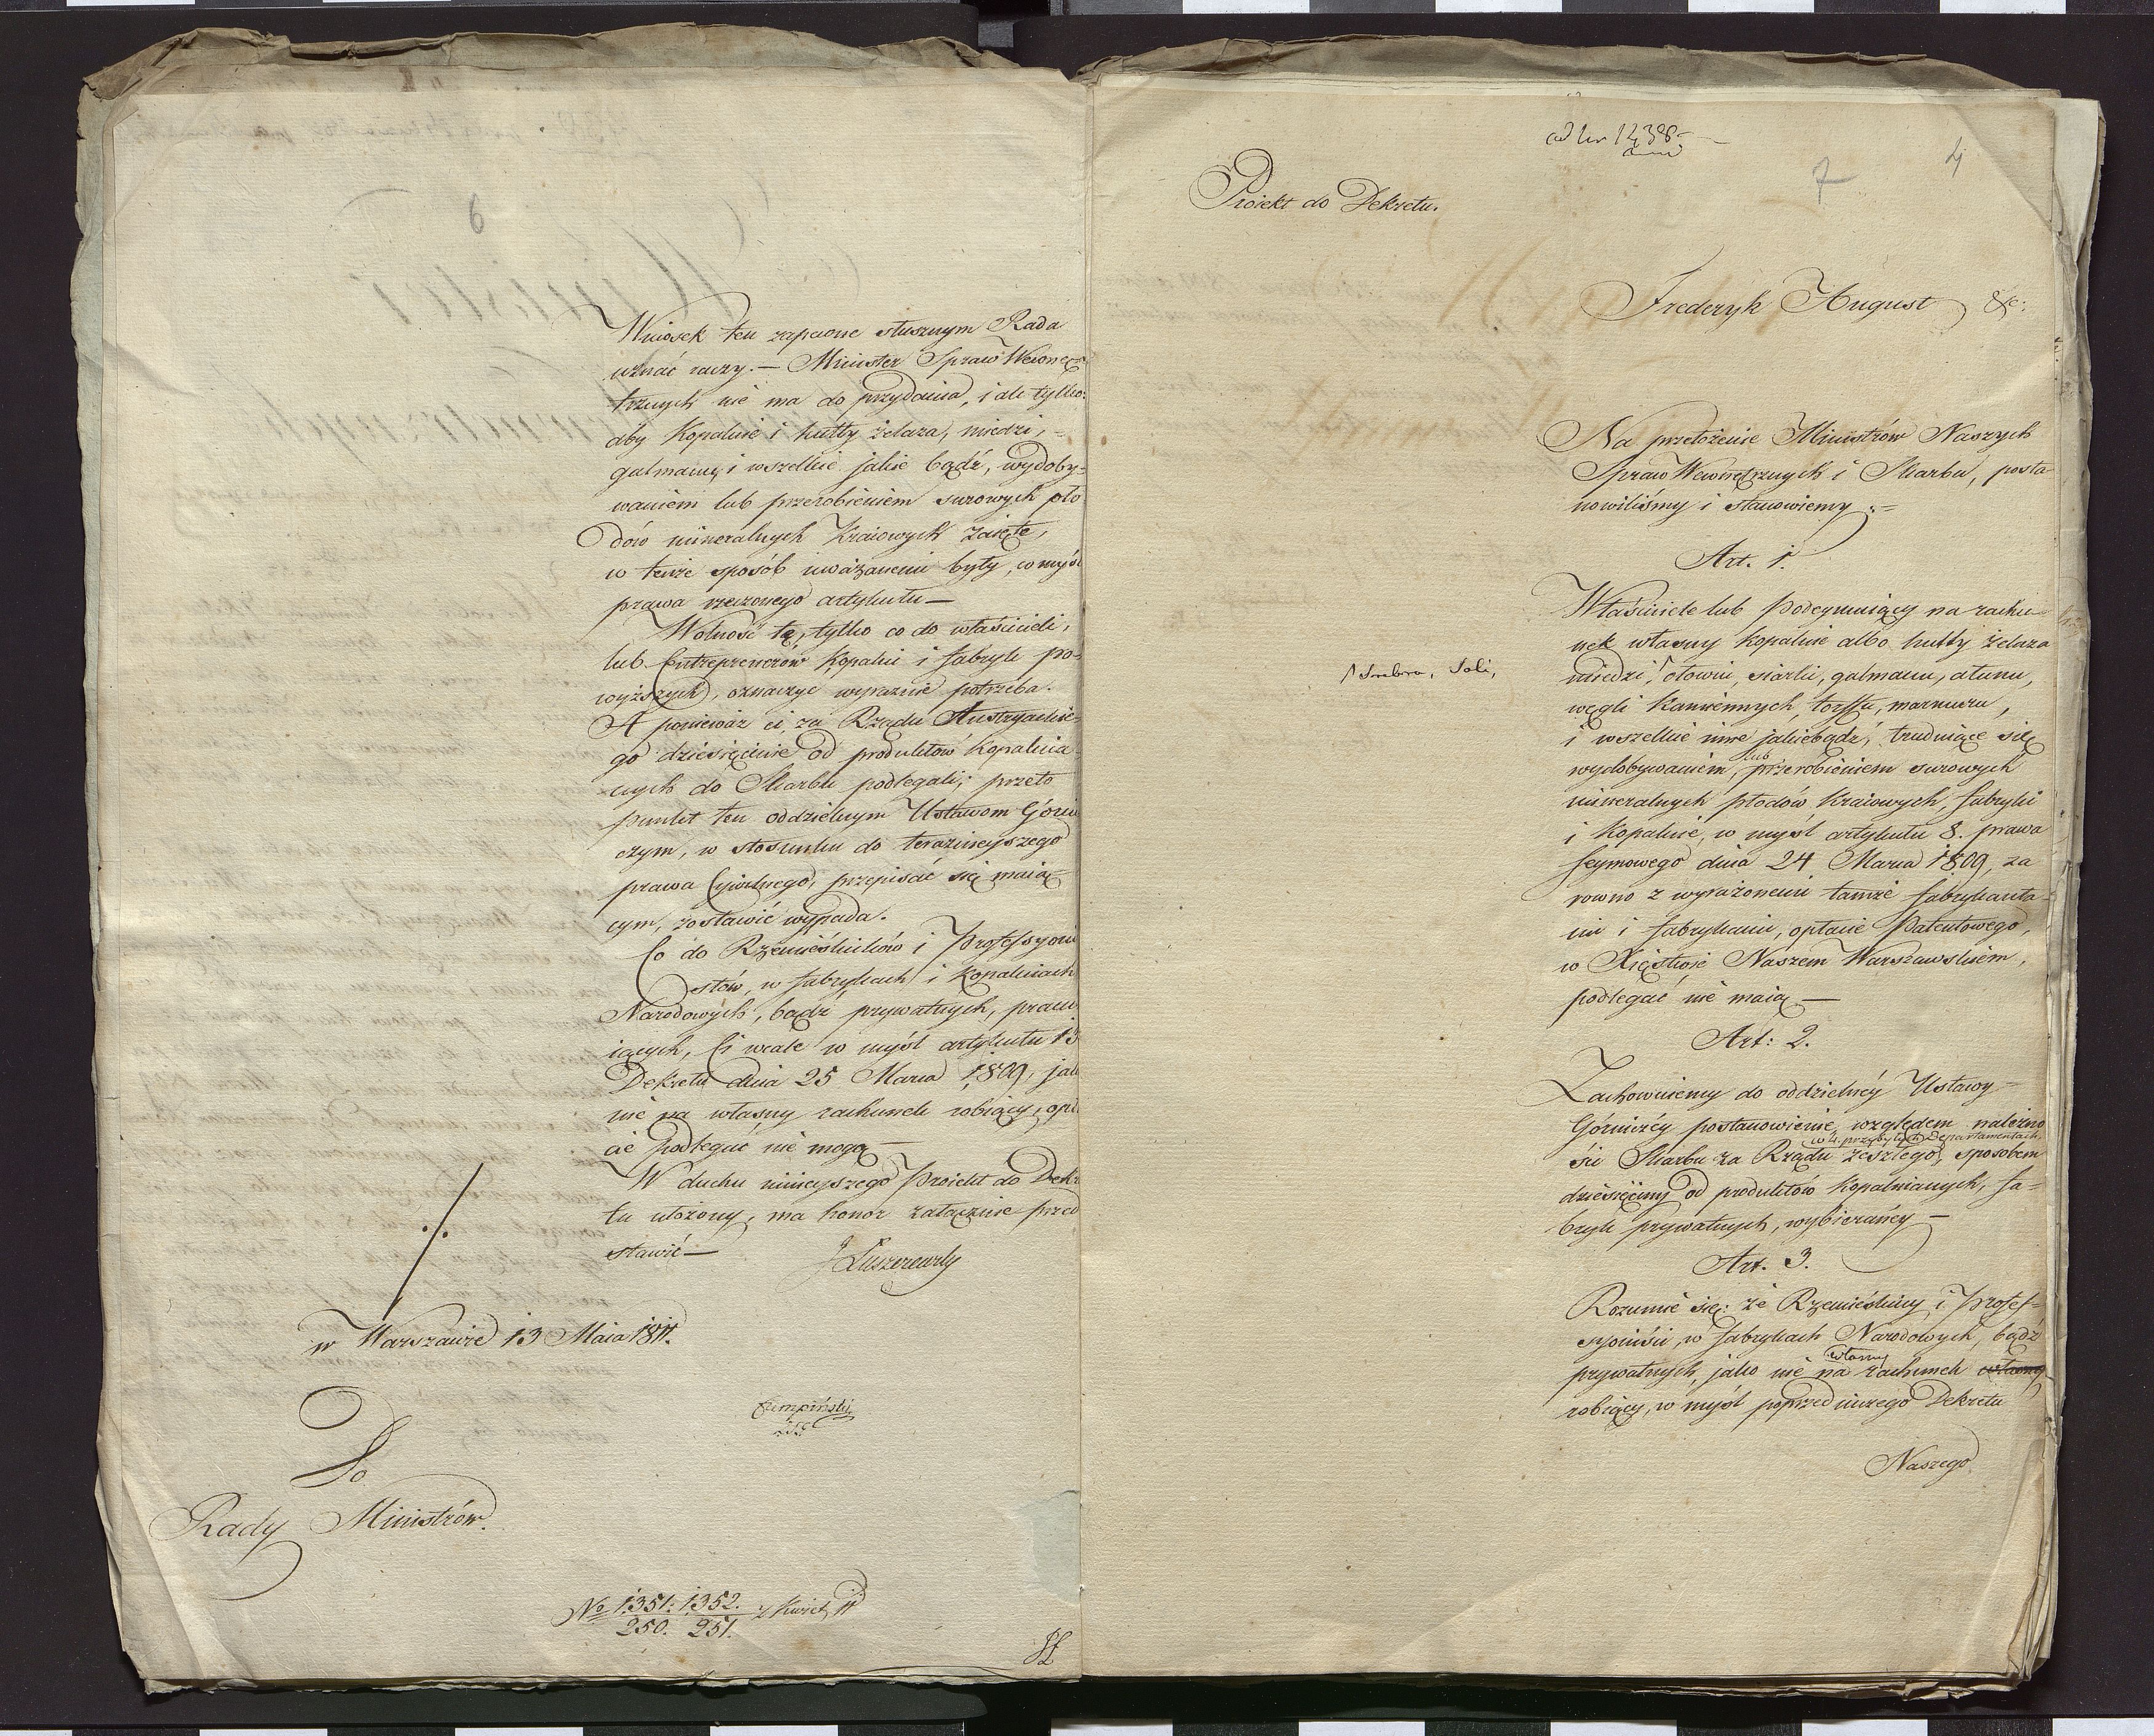 6
Wniosek ten zapewne słusznym Rada
uznać raczy. — Minister Spraw Wewnę
trznych nie ma do przydania, iak tylko:
aby kopalnie i hutty żelaza, miedzi,
galmanu, i wszelkie jakie bądź, wydoby-
waniem lub przerobieniem surowych pło
dów mineralnych Kraiowych zaięte,
w tenże sposób uważanemi były, w myśl
prawa rzeczonego artykułu —
Wolność tę, tylko co do właścicieli,
lub Entreprenerów kopalń i fabryk po-
wyższych, oznaczyć wyraźnie potrzeba.
A ponieważ ci, za Rządu Austryackie-
go dziesięcinie od produktów kopalnia-
nych do Skarbu podlegali; przeto
punkt ten oddzielnym Ustawom Górni
czym, w stosunku do teraznieyszego
prawa Cywilnego, przepisać się maią-
cym, zostawić wypada.
Co do Rzemieślników i Professyoni
stów, w fabrykach i kopalniach
Narodowych, bądź prywatnych, pracu-
iących, Ci wcale w myśl artykułu 13
Dekretu dnia 25 Marca 1809, jak
nie na własny rachunek robiący, opł
acie podlegać nie mogą —
W duchu ninieyszego Proiekt do Dekr
tu ułożony, ma honor załącznie przed
stawić —
J Łuszczewsky
w Warszawie 13 Maia 1811.
Do
Rady Ministrów.
No 1351. 1352. z Kwiet. 11
250. 251.
ad Nr 1438
7
4
Proiekt do Dekretu.
Frederyk August &c:
Na przełożenie Ministrów Naszych
Spraw Wewnętrznych i Skarbu, posta-
nowiliśmy i stanowiemy:
Art. 1.
Właściciele lub podeymuiący na rachu-
nek własny kopalnie albo hutty żelaza
Srebra, Soli,
miedzi, ołowiu, siarki, galmanu, ałunu,
węgli kamiennych, torffu, marmuru,
i wszelkie inne jakiebądź, trudniące się
lub
wydobywaniem, przerobieniem surowych
mineralnych płodów kraiowych, fabryki
i kopalnie, w myśl artykułu 8. prawa
Seymowego dnia 24 Marca 1809, za
rowno z wyrażonemi tamże fabrykanta-
mi i fabrykami, opłacie Patentowego,
w Xięstwie Naszem Warszawskiem,
podlegać nie maią —
Art: 2.
Zachowuiemy do oddzielnéy Ustawy
Górniczéy postanowienie, względem należno
w 4. przybyłych Departamentach
ści Skarbu za Rządu zeszłego, sposobem
dziesięciny od produktów kopalnianych, fa-
bryk prywatnych, wybieranéy —
Art. 3.
Rozumie się: że Rzemieślnicy i Profes-
syoniści, w fabrykach Narodowych, bądź
własny
prywatnych, jako nie na rachunek własny
robiący, w myśl poprzedniczego Dekretu
Naszego